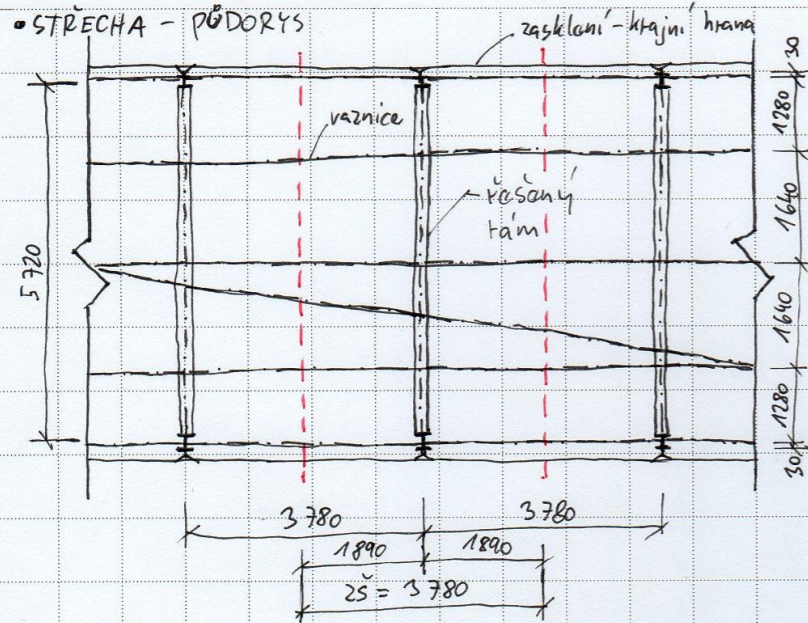 • STŘECHA - PŮDORYS
zasklení - krajní hrana
vaznice
řešený
rám
5 720
30
1280
1640
1640
1280
30
3 780
3 780
1890
1890
ZŠ = 3 780